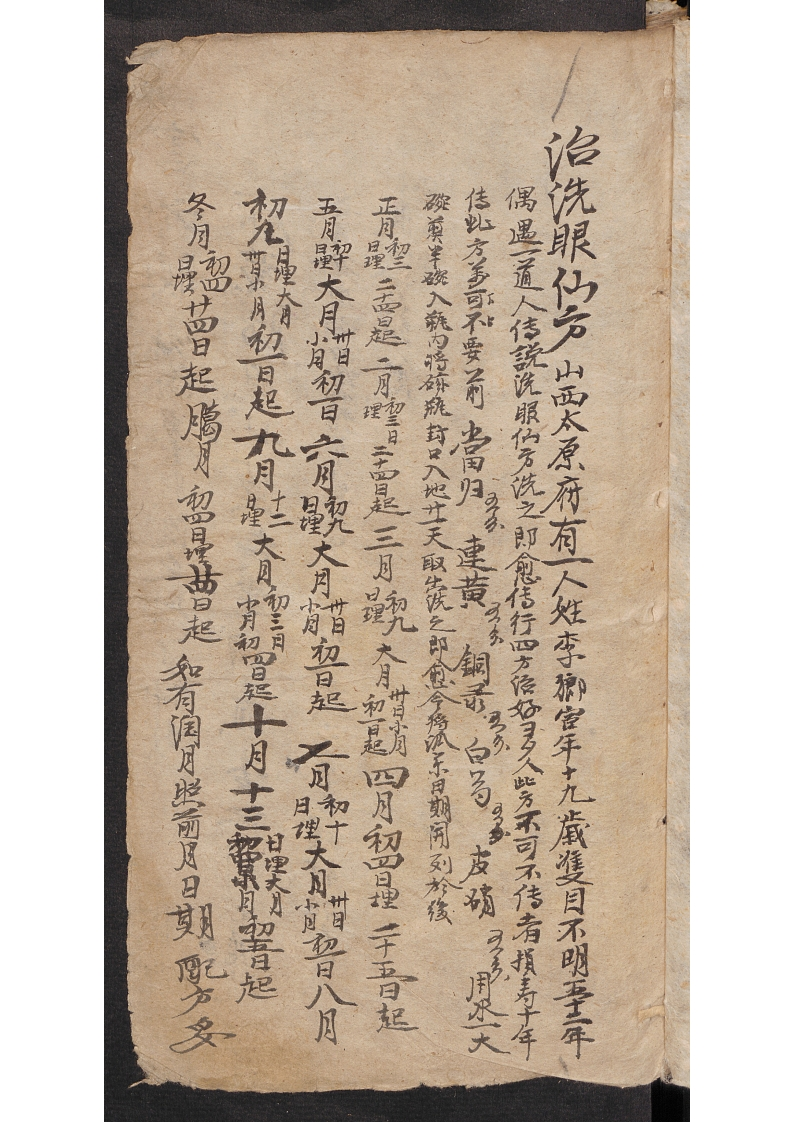 治洗眼仙方 山西太原府有一人姓李鄉宦年十九歲雙目不明五十二年
偶遇一道人传説洗眼仙方洗之即愈传行四方治好多人此方不可不传者損寿十年
传此方並可不要前 当归 五分 連黄 五分 銅录 五分 白芍 五分 皮硝 五分 用水一大
碗煎半碗入瓶内将磁瓶封口入地廿一天取出洗之即愈今将流年日期開列於後
正月初三日埋二十四日起 二月初三日埋二十四日起 三月初九日埋 大月卅日小月初一日起 四月初四日埋二十五日起
五月初十日埋 大月卅日小月初一日 六月初九日埋 大月卅日小月初一日起 七月初十日埋 大月卅日小月初一日 八月
初九日埋大月卅日小月初一日起 九月十二日埋 大月初三日小月初四日起 十月十三日埋大月初四日小月初五日起
冬月初四日埋廿四日起 臈月初四日埋廿四日起 如有润月照前月日期 配方妥